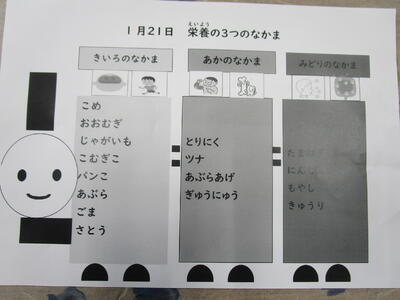 1月21日 栄養の3つのなかま
えいよう
きいろのなかま
こめ
おおむぎ
じゃがいも
こむぎこ
パンこ
あぶら
ごま
さとう
あかのなかま
とりにく
ツナ
あぶらあげ
ぎゅうにゅう
みどりのなかま
もやし
きゅうり